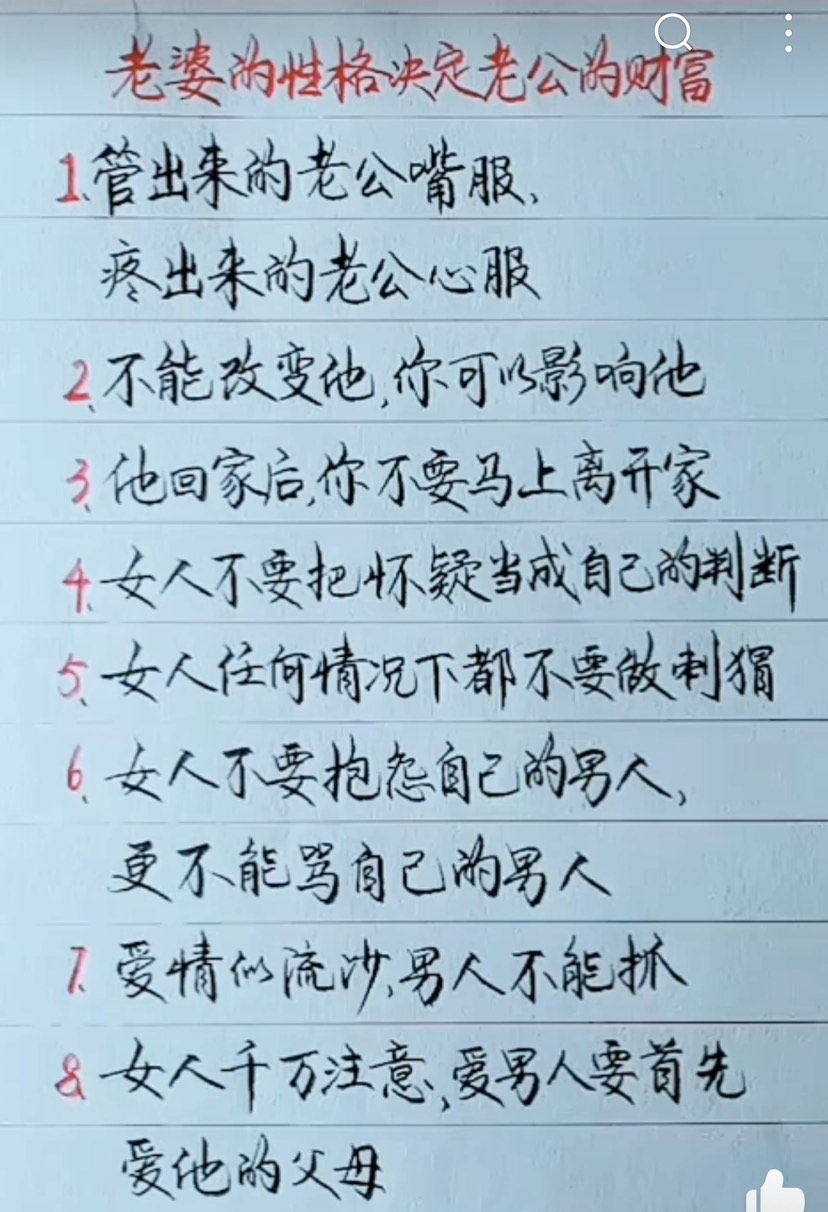 老婆的性格决定老公的财富
1.管出来的老公嘴服,
疼出来的老公心服
2.不能改变他,你可以影响他
3.他回家后,你不要马上离开家
4.女人不要把怀疑当成自己的判断
5.女人任何情况下都不要做刺猬
6.女人不要抱怨自己的男人,
更不能骂自己的男人
7.爱情似流沙,男人不能抓
8.女人千万注意,爱男人要首先
爱他的父母